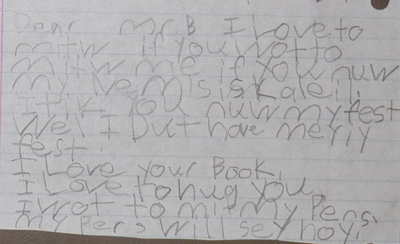 Dear Mr. B I Love to
mitw if you wot to
mitw me if you nuw
my Neme is is kale ll
I tik you nuw my fest
Well I Dut have merly
fest.
I Love your Book.
I Love to hug you
I wot to mit my Pers.
My Pers will sey hoy.